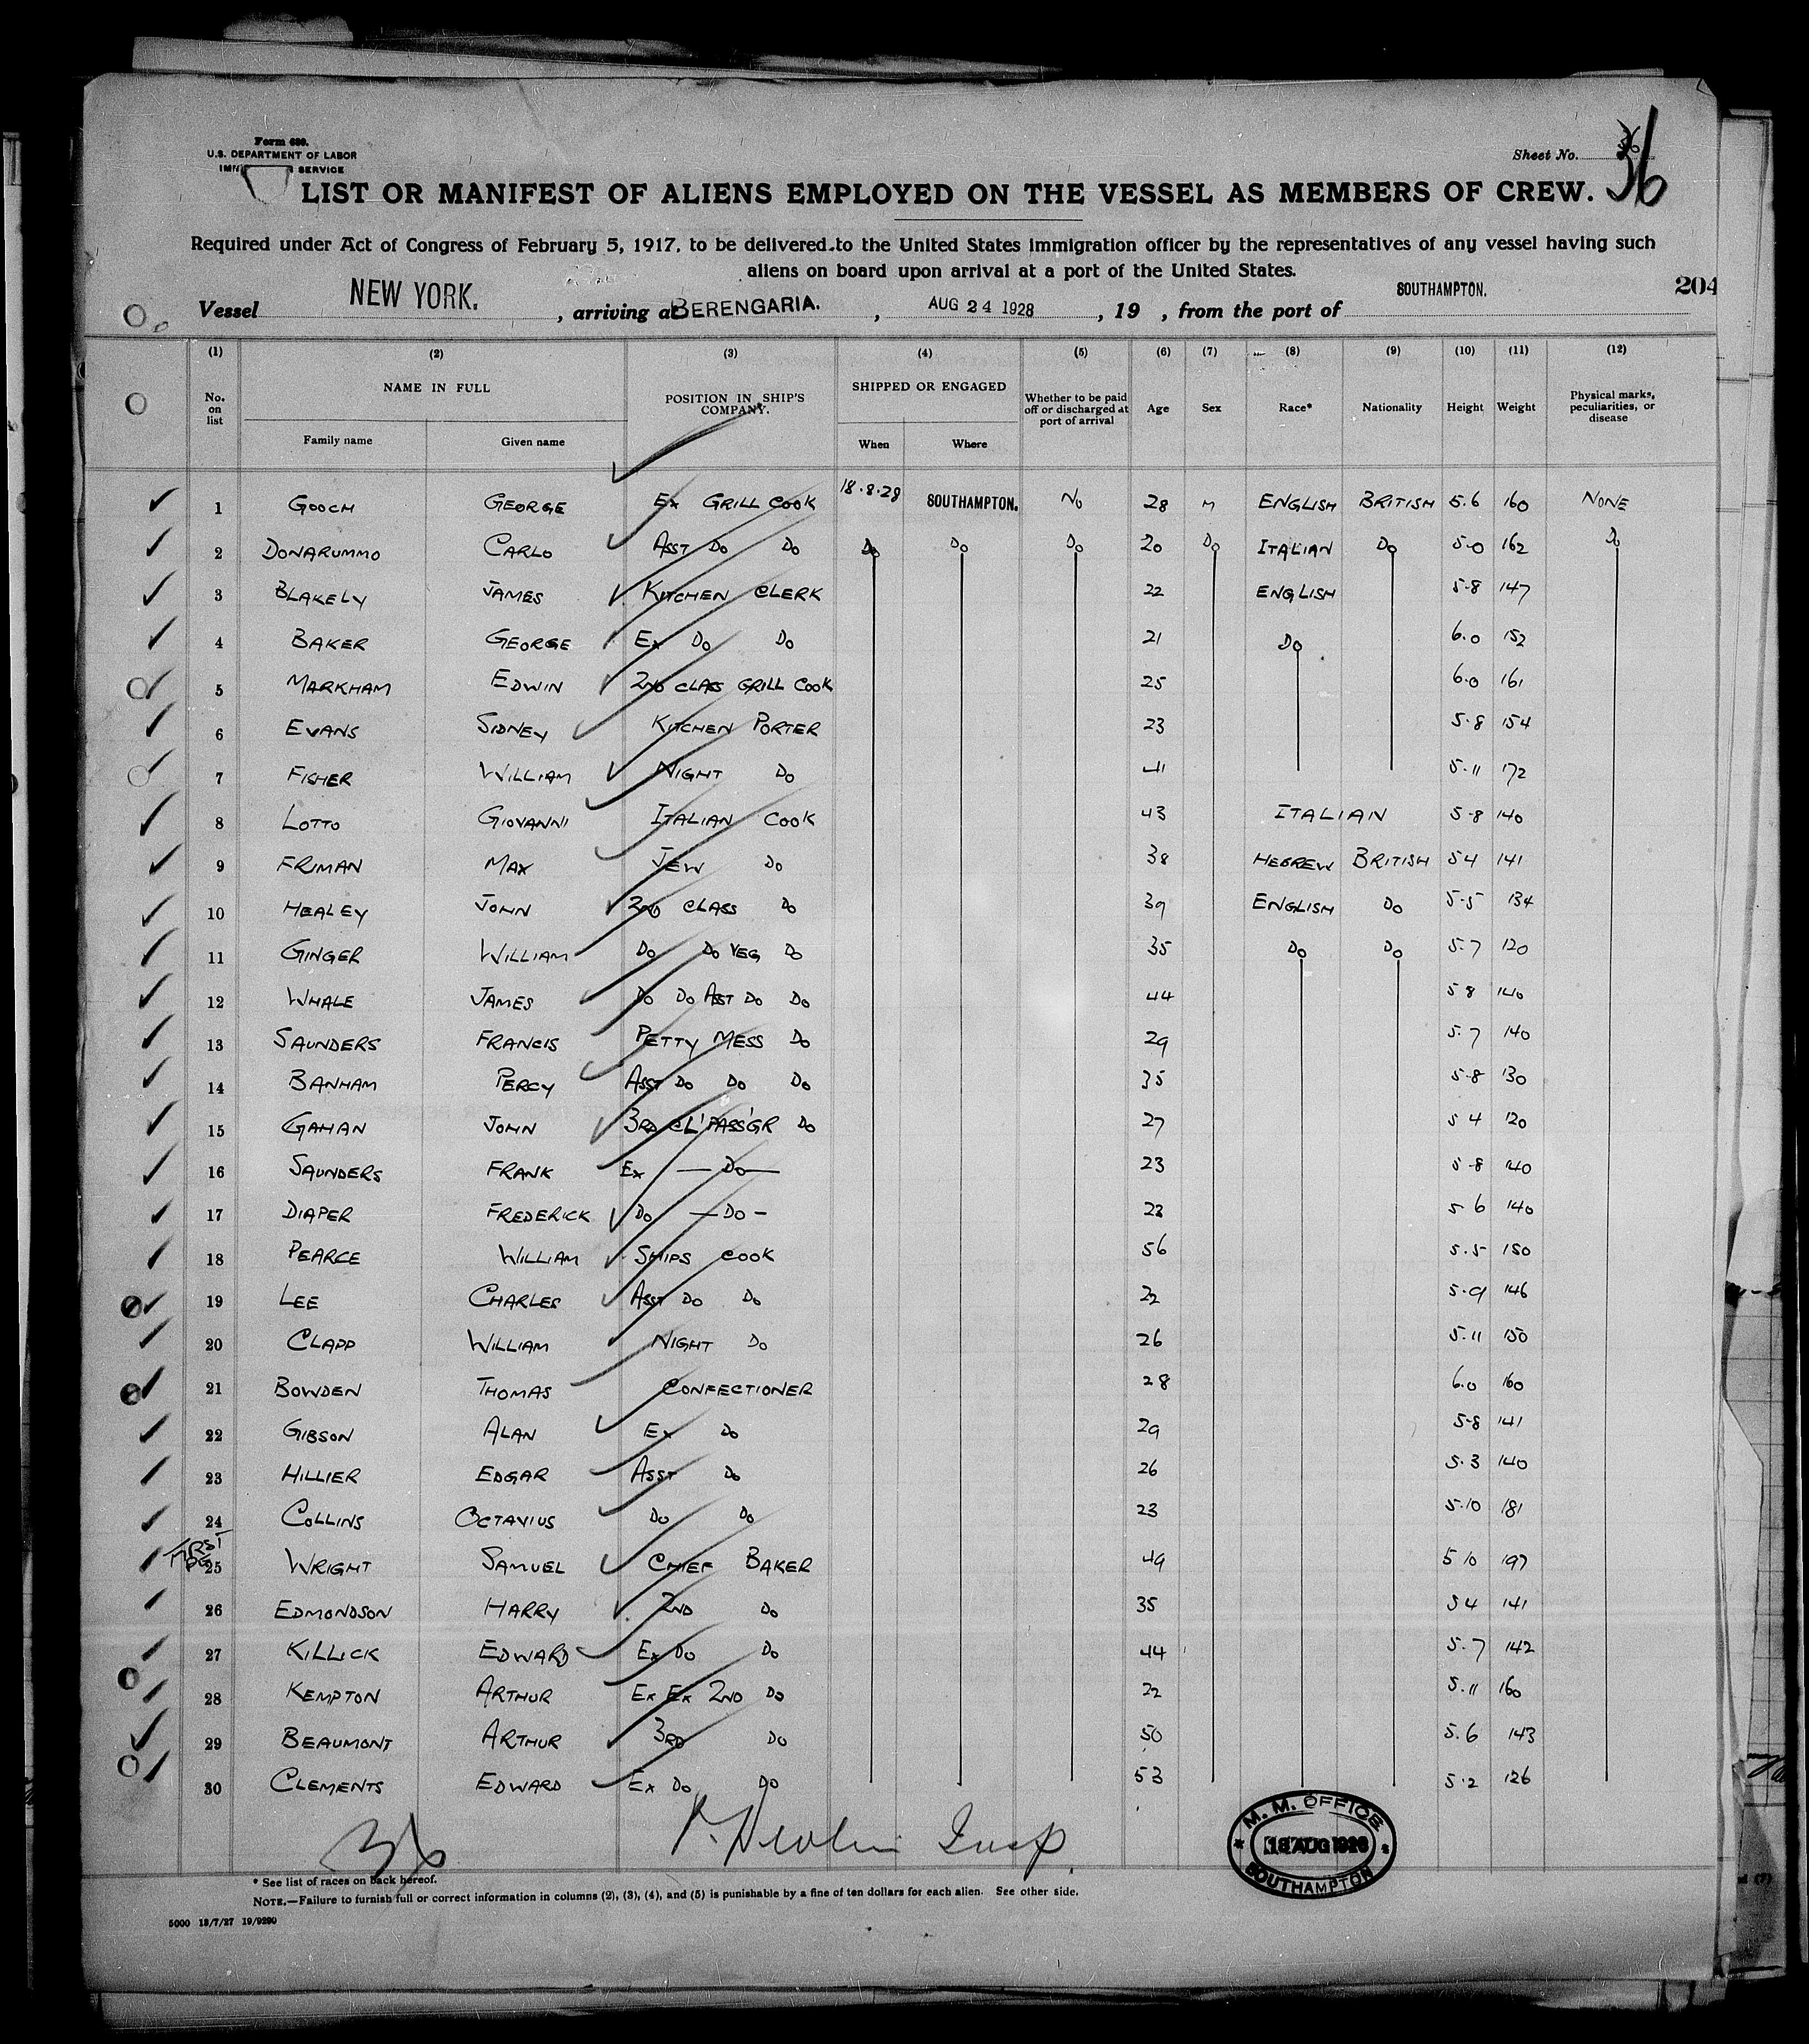 Form 680.
U.S. DEPARTMENT OF LABOR
SERVICE
Sheet No. 36
LIST OR MANIFEST OF ALIENS EMPLOYED ON THE VESSEL AS MEMBERS OF CREW.
Required under Act of Congress of February 5, 1917, to be delivered to the United States immigration officer by the representatives of any vessel having such
aliens on board upon arrival at a port of the United States.
204
Vessel NEW YORK. , arriving at BERENGARIA. , AUG 24 1928 , 19 , from the port of SOUTHAMPTON.
(1) (2) (3) (4) (5) (6) (7) (8) (9) (10) (11) (12)
No. on list NAME IN FULL Family name Given name POSITION IN SHIP'S COMPANY. SHIPPED OR ENGAGED When Where Whether to be paid off or discharged at port of arrival Age Sex Race* Nationality Height Weight Physical marks, peculiarities, or disease
1 GOOCH GEORGE EX GRILL COOK 18.8.28 SOUTHAMPTON. NO 28 M ENGLISH BRITISH 5.6 160 NONE
2 DONARUMMO CARLO ASST DO DO DO DO DO 20 DO ITALIAN DO 5-0 162 DO
3 BLAKELY JAMES KITCHEN CLERK 22 ENGLISH 5-8 147
4 BAKER GEORGE EX DO DO 21 DO 6.0 152
5 MARKHAM EDWIN 2ND CLASS GRILL COOK 25 6.0 161
6 EVANS SIDNEY KITCHEN PORTER 23 5.8 154
7 FISHER WILLIAM NIGHT DO 41 5.11 172
8 LOTTO GIOVANNI ITALIAN COOK 43 ITALIAN 5-8 140
9 FRIMAN MAX JEW DO 38 HEBREW BRITISH 5 4 141
10 HEALEY JOHN 2ND CLASS DO 39 ENGLISH DO 5-5 134
11 GINGER WILLIAM DO DO VEG DO 35 DO DO 5.7 120
12 WHALE JAMES DO DO ASST DO DO 44 5 8 140
13 SAUNDERS FRANCIS PETTY MESS DO 29 5.7 140
14 BANHAM PERCY ASST DO DO DO 35 5-8 130
15 GAHAN JOHN 3RD CL' PASS'GR DO 27 5 4 120
16 SAUNDERS FRANK EX — DO — 23 5-8 140
17 DIAPER FREDERICK DO — DO - 23 5 6 140
18 PEARCE WILLIAM SHIPS COOK 56 5.5 150
19 LEE CHARLES ASST DO DO 22 5.9 146
20 CLAPP WILLIAM NIGHT DO 26 5.11 150
21 BOWDEN THOMAS CONFECTIONER 28 6.0 160
22 GIBSON ALAN EX DO 29 5-8 141
23 HILLIER EDGAR ASST DO 26 5.3 140
24 COLLINS OCTAVIUS DO DO 23 5.10 181
25 WRIGHT SAMUEL CHIEF BAKER 49 5 10 197
26 EDMONDSON HARRY 2ND DO 35 5 4 141
27 KILLICK EDWARD EX DO DO 44 5.7 142
28 KEMPTON ARTHUR EX EX 2ND DO 22 5.11 160
29 BEAUMONT ARTHUR 3RD DO 50 5.6 143
30 CLEMENTS EDWARD EX DO DO 53 5.2 126
36
Insp.
M. M. OFFICE
SOUTHAMPTON
* See list of races on back hereof.
NOTE.—Failure to furnish full or correct information in columns (2), (3), (4), and (5) is punishable by a fine of ten dollars for each alien. See other side.
5000 13/7/27 19/9290